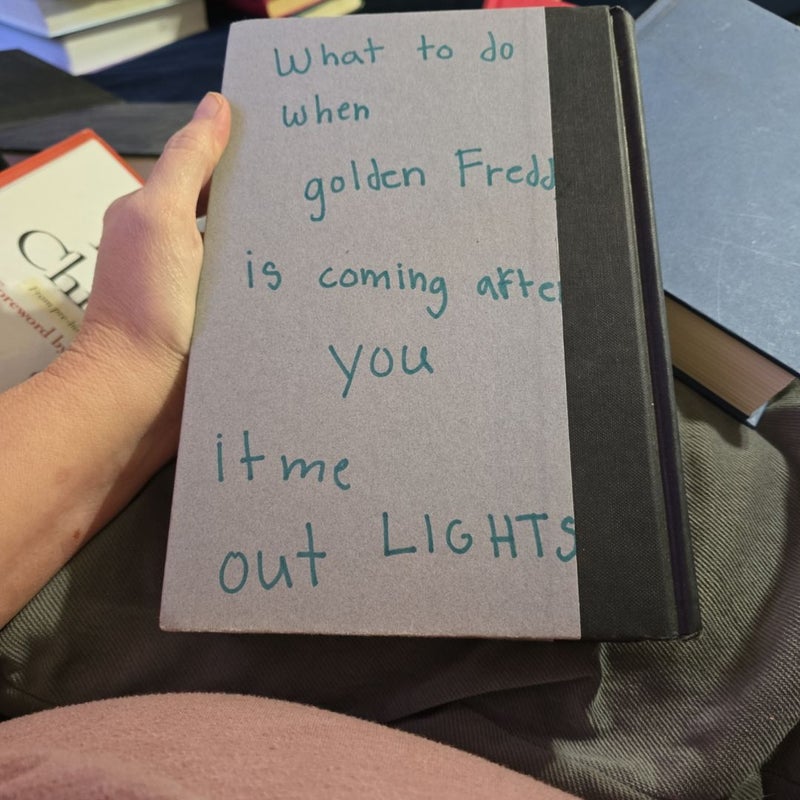 What to do
when
golden Fredd
is coming after
you
it me
out LIGHTS
Ch
Foreword by